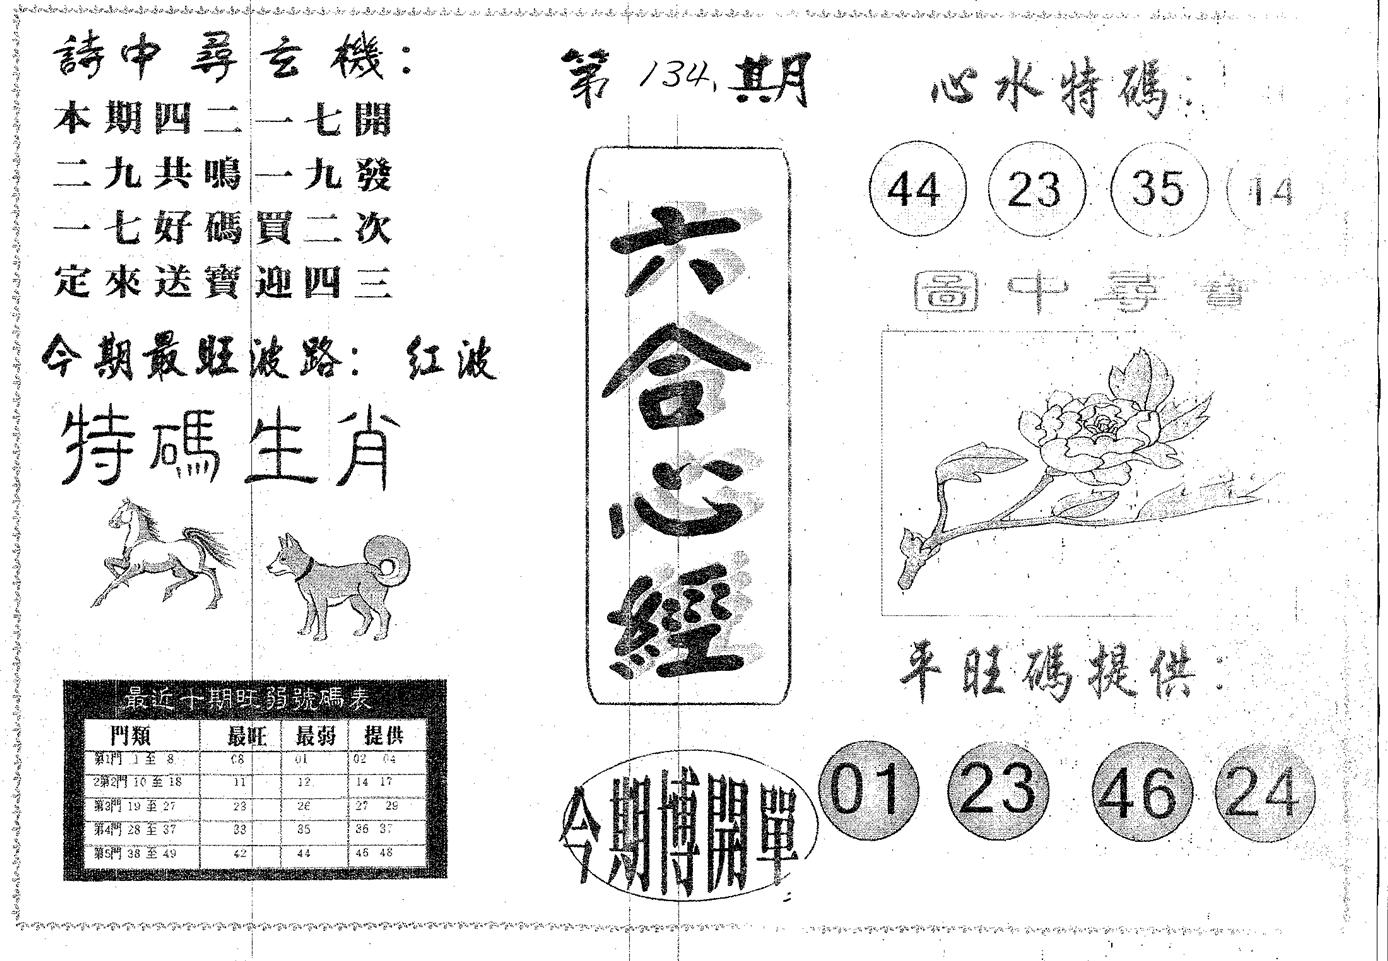 詩中尋玄機：
本期四二一七開
二九共鳴一九發
一七好碼買二次
定來送寶迎四三
今期最旺波路： 红波
特碼生肖
最近十期旺弱號碼表
門類 最旺 最弱 提供
第1門 1 至 8 08 01 02 04
2第2門 10 至 18 11 12 14 17
第3門 19 至 27 23 26 27 29
第4門 28 至 37 33 35 36 37
第5門 38 至 49 42 44 46 48
第 134 期
六合心經
今期博開單
心水特碼：
44 23 35 14
圖中尋寶
平旺碼提供：
01 23 46 24